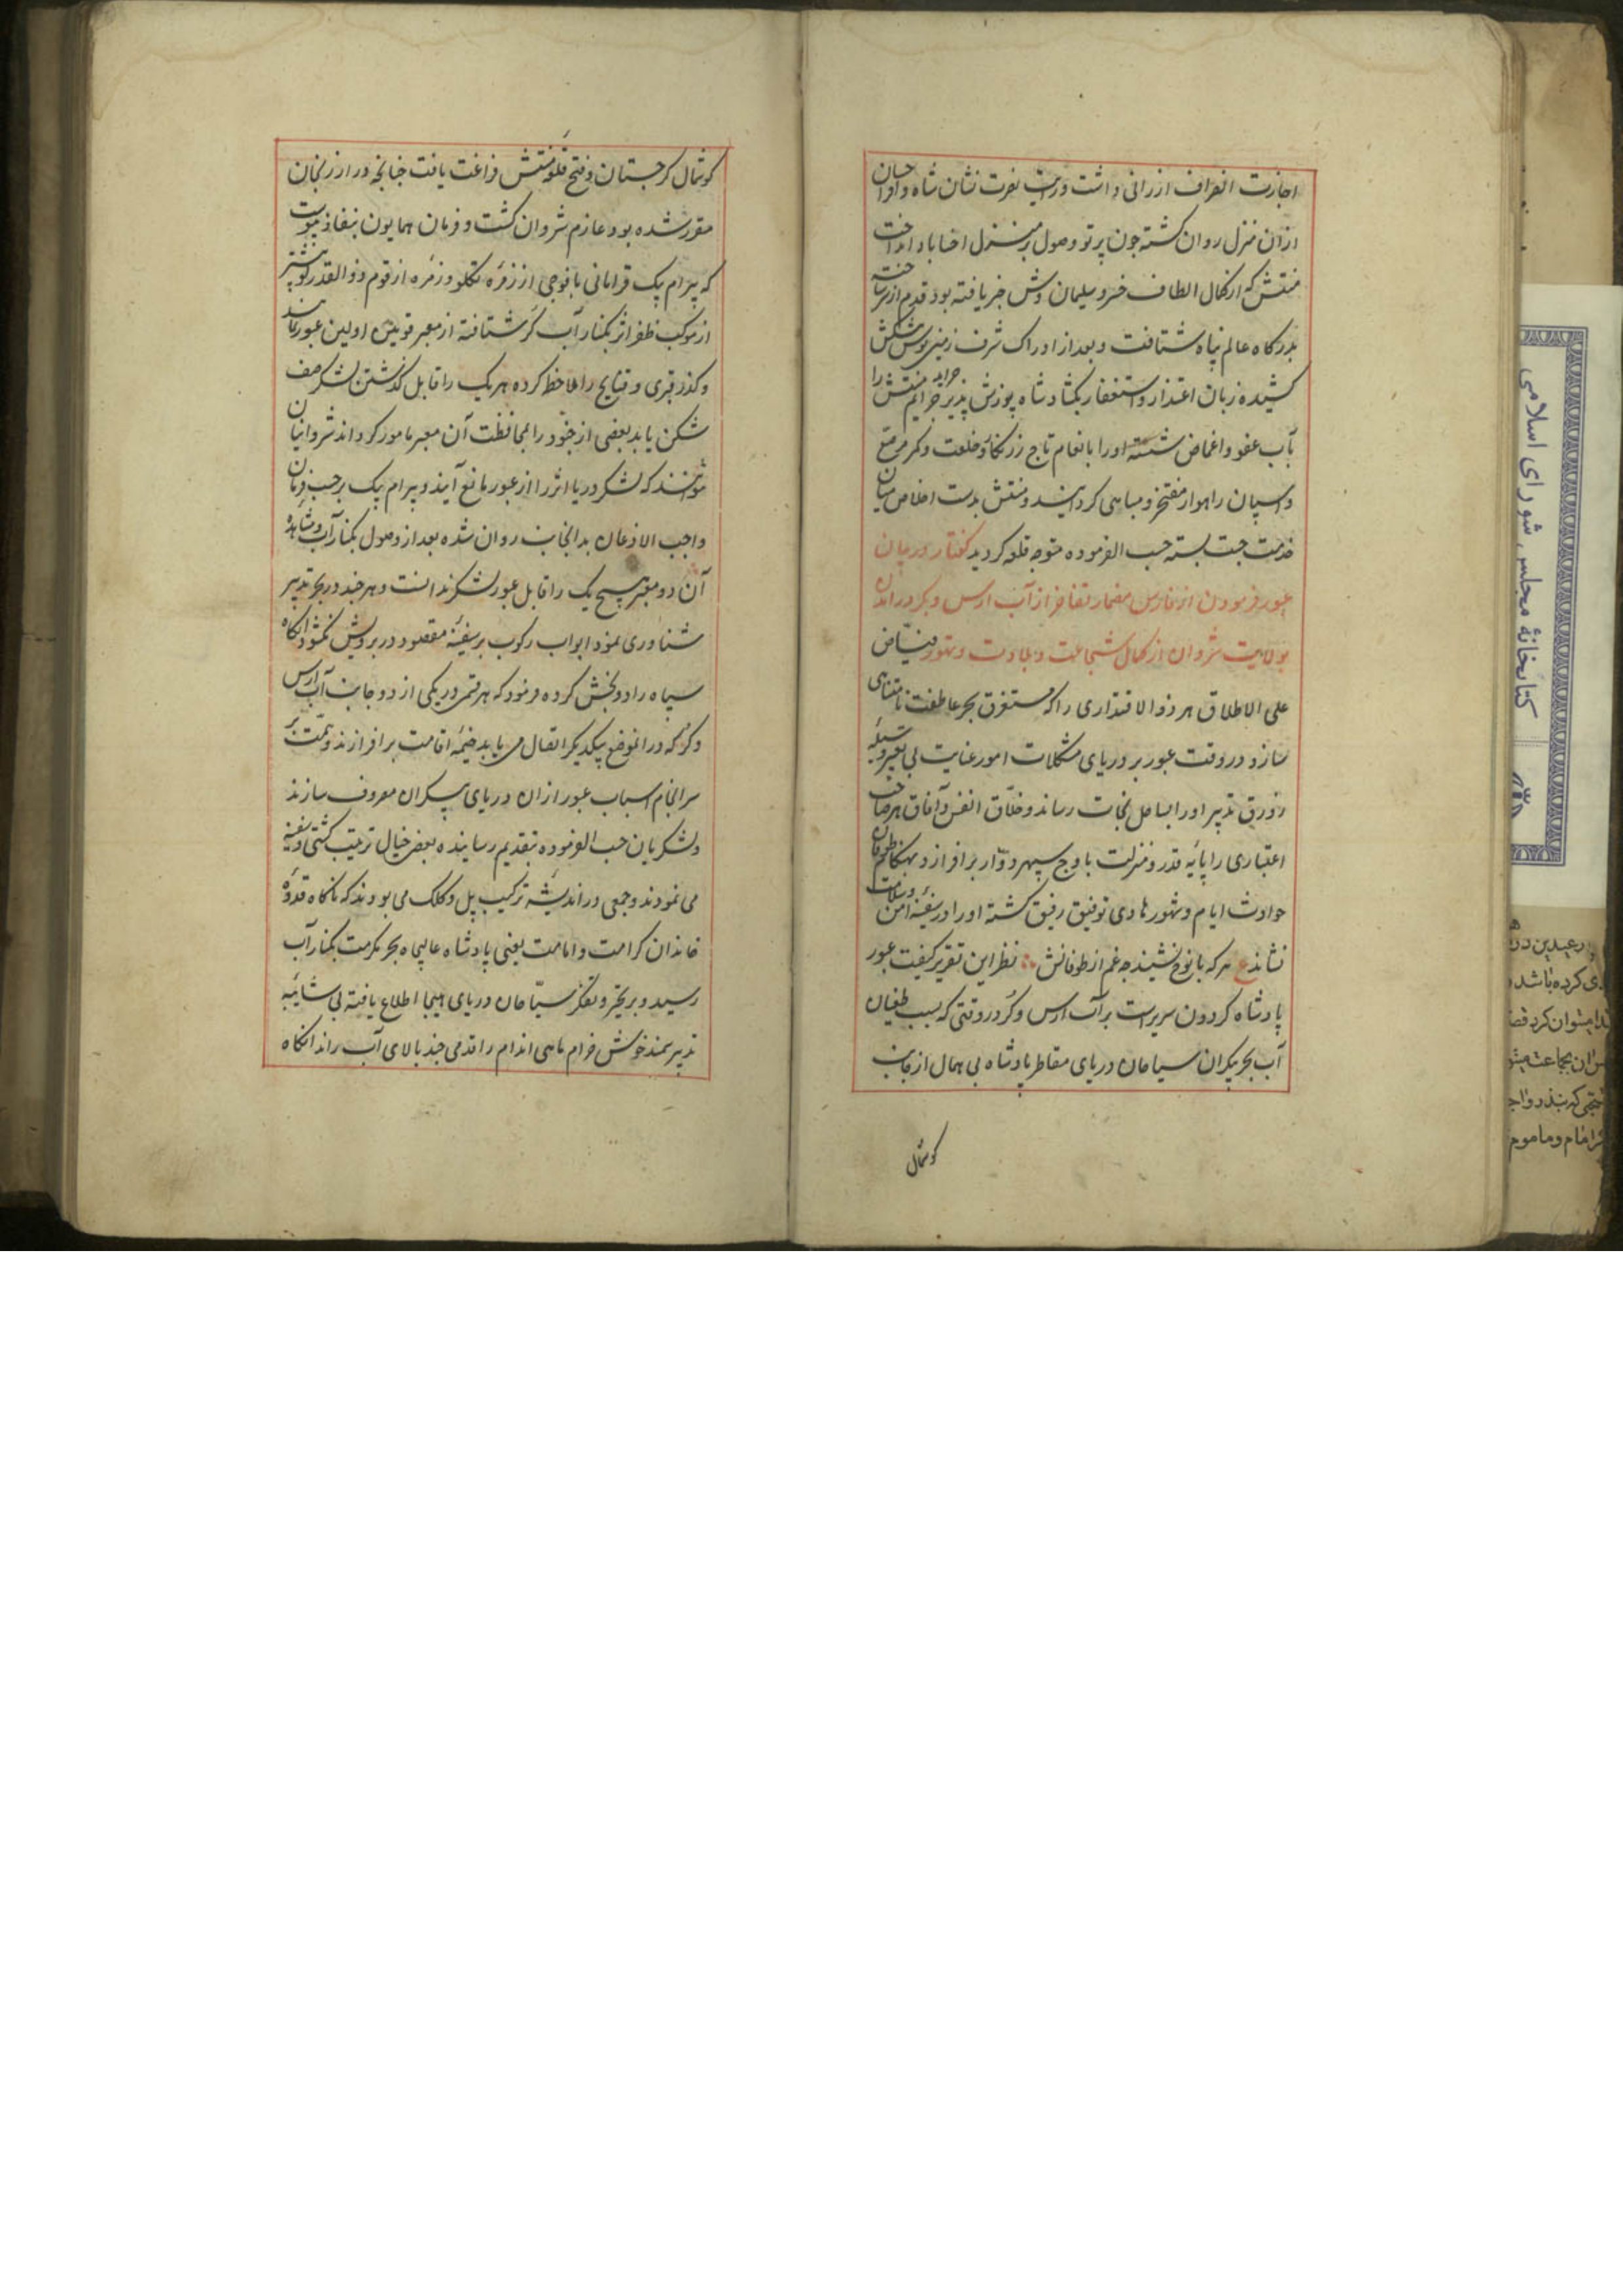 اجازت انصراف ارزانی داشت و رایت نصرت نشان شاه وافر احسان
ازان منزل روان کشته چون پرتو وصول بر منزل اخناباد انداخت
منتش که از کمال الطاف خسرو سلیمان وش خبر یافته بود قدم از سر ساخته
بدرکاه عالم پناه شتافت و بعد از ادراک شرف زمین بوس پیشکش
کشیده زبان اعتذار و استغفار بکشاد شاه پوزش پذیر جراید جرایم منتش را
بآب عفو و اغماض شسته او را بانعام تاج زرنکار و خلعت و کمر مرصع
و اسپان راهوار مفتخر و مباهی کردانید و منتش بدست اخلاص میان
خدمت چست بسته حسب الفرموده متوجه قلعه کردید کفتار در بیان
عبور فرمودن ان فارس مضمار تفاخر از آب ارس و کر در اندن
بولایت شروان از کمال شجاعت و جلادت و تهور فیّاض
علی الاطلاق هر ذو الاقتداری را که مستغرق بحر عاطفت نامتناهی
سازد در وقت عبور بر دریای مشکلات امور عنایت بی وسیله
زورق تدبیر او را بساحل نجات رساند و خلّاق انفس و آفاق هر صاحب
اعتباری را پایه قدر و منزلت باوج سپهر دوّار برافرازد بهنکام طوفان
حوادث ایام و شهور هادی توفیق رفیق کشته او را در سفینه امن و سلامت
نشاند ع هر که با نوح نشیند چه غم از طوفانش نظر این تقریر کیفیت عبور
پادشاه کردون سریر است بر آب ارس و کر در وقتی که بسبب طغیان
آب بحر بیکران سیاحان دریای مقاطر پادشاه بی همال از جانب
کوشمال
کوشمال کرجستان و فتح قلعه منتش فراغت یافت چنانچه در ارزنجان
مقرر شده بود عازم شروان کشت و فرمان همایون بنفاذ پیوست
که بیرام بیک قرامانی با فوجی از زمره تکلو و زمره از قوم ذو القدر پیشتر
از موکب ظفر اثر بکنار آب کر شتافته از معبر قوین اولین عبور نماید
و کذر قبری و قنایج را ملاحظ کرده هر یک را قابل کذشتن لشکر صف
شکن یابد بعضی از جنود را بمحافظت آن معبر مامور کرداند شروانیان
نتوانند که لشکر دریا اثر را از عبور مانع آیند و بیرام بیک بر حسب فرمان
واجب الاذعان بدانجانب روان شده بعد از وصول بکنار آب و مشاهده
آن دو معبر هیچ یک را قابل عبور لشکر ندانست و هر چند در بحر تدبیر
شناوری نمود ابواب رکوب بر سفینه مقصود در برویش نکشود انکاه
سپاه را دو بخش کرده فرمود که هر قسمی در یکی از دو جانب آب ارس
و کر که در انموضع بیکدیکر اتصال می یابد خیمه اقامت برافرازند و همت بر
سرانجام اسباب عبور ازان دریای بیکران معروف سازند
و لشکریان حسب الفرموده بتقدیم رسانیده بعضی خیال ترتیب کشتی و سفینه
می نمودند و جمعی در اندیشه ترکیب پل و کلک می بودند که ناکاه قدوه
خاندان کرامت و امامت یعنی پادشاه عالیجاه بحر مکرمت بکنار آب
رسید و بر تحیر و تفکر سبّاحان دریای هیجا اطلاع یافته بی شایبه
تدبیر سمند خوش خرام ماهی اندام را قدمی چند بالای آب راند انکاه
کتابخانهٔ مجلس شورای اسلامی